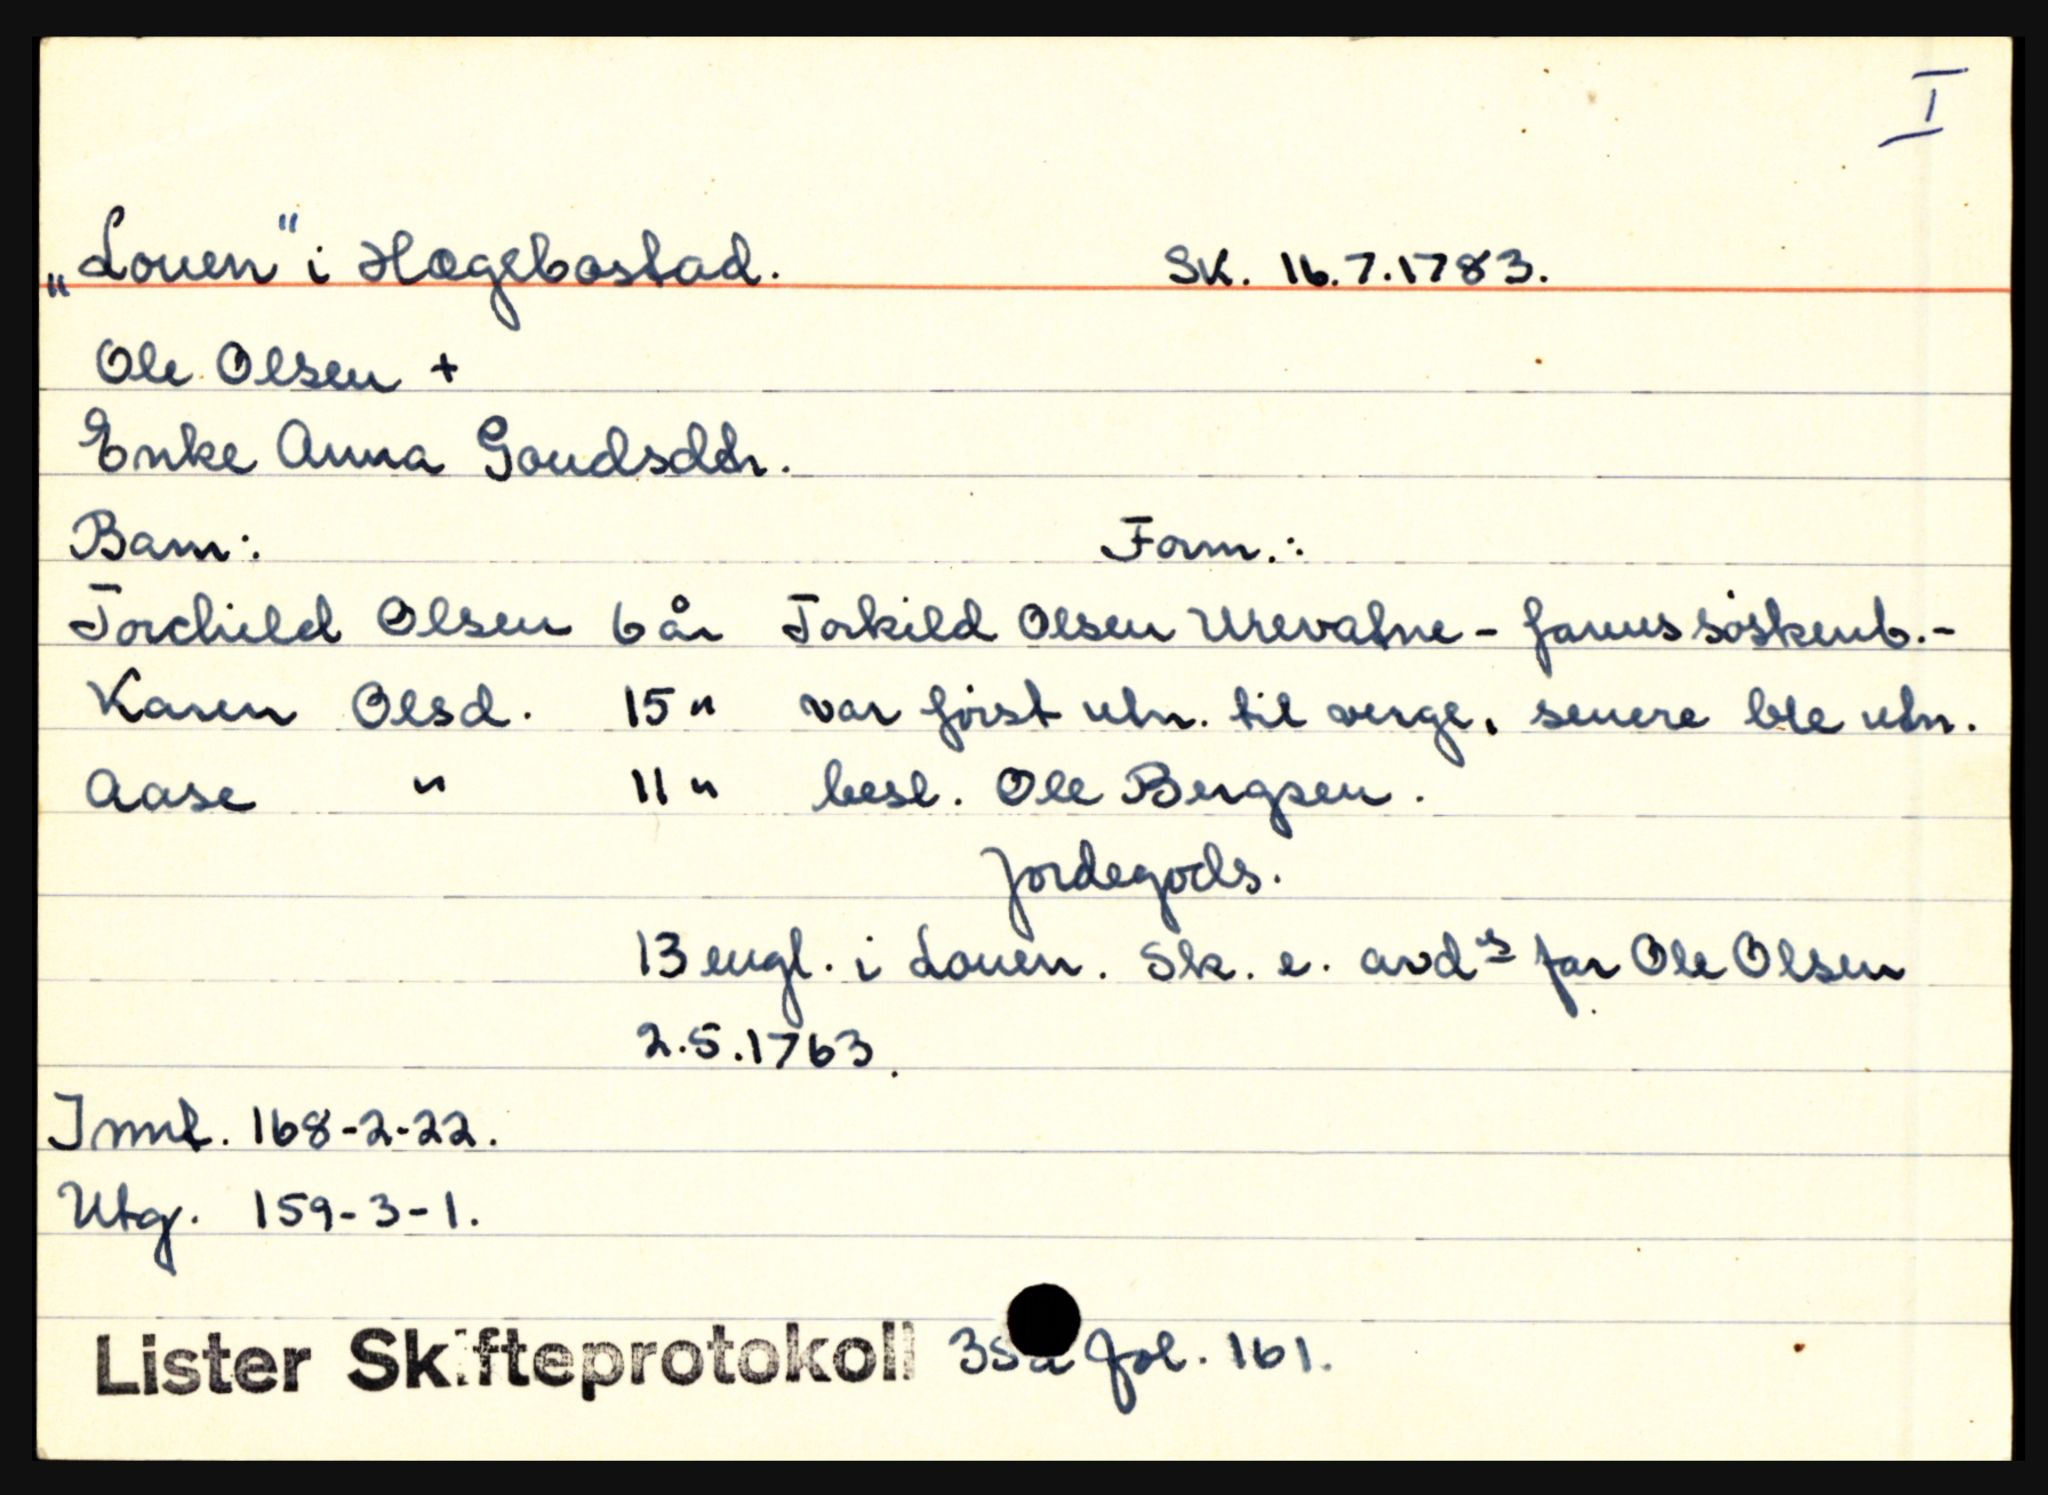 I
„Louen" i Hægebostad. SK. 16.7.1783.
Ole Olsen +
Enke Anna Goudsdtr.
Barn: Form.:
Torchild Olsen 6 år Torkild Olsen Urevatne - farens söskenb. -
Karen Olsd. 15 " var först utn. til verge, senere ble utn.
Aase " 11 " besl. Ole Bergsen.
Jordegods.
13 engl. i Louen. Sk. e. avdˢ far Ole Olsen
2.5.1763.
Innt. 168-2-22.
Utg. 159-3-1.
Lister Skifteprotokoll fol. 161.